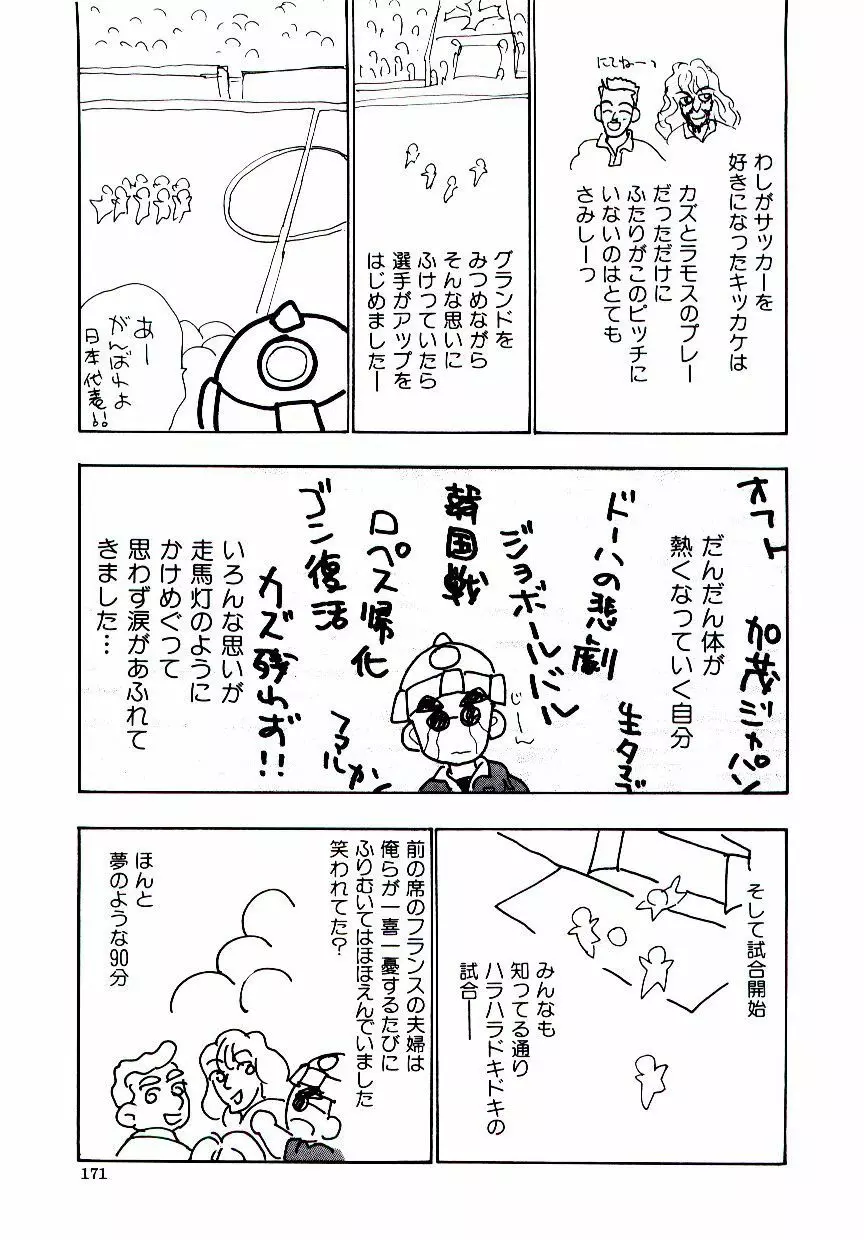 わしがサッカーを
好きになったキッカケは
にてねーっ
カズとラモスのプレー
だっただけに
ふたりがこのピッチに
いないのはとても
さみしーっ
グランドを
みつめながら
そんな思いに
ふけっていたら
選手がアップを
はじめましたー
あー
がんばれよ
日本代表!!
オフト
加茂ジャパン
だんだん体が
熱くなっていく自分
ドーハの悲劇
生タマゴ
ジョホールバル
韓国戦
じーん
ロペス帰化
ファルカン
ゴン復活
カズ残れず!!
いろんな思いが
走馬灯のように
かけめぐって
思わず涙があふれて
きました…
そして試合開始
みんなも
知ってる通り
ハラハラドキドキの
試合――
前の席のフランスの夫婦は
俺らが一喜一憂するたびに
ふりむいてはほほえんでいました
笑われてた?
ほんと
夢のような90分
171